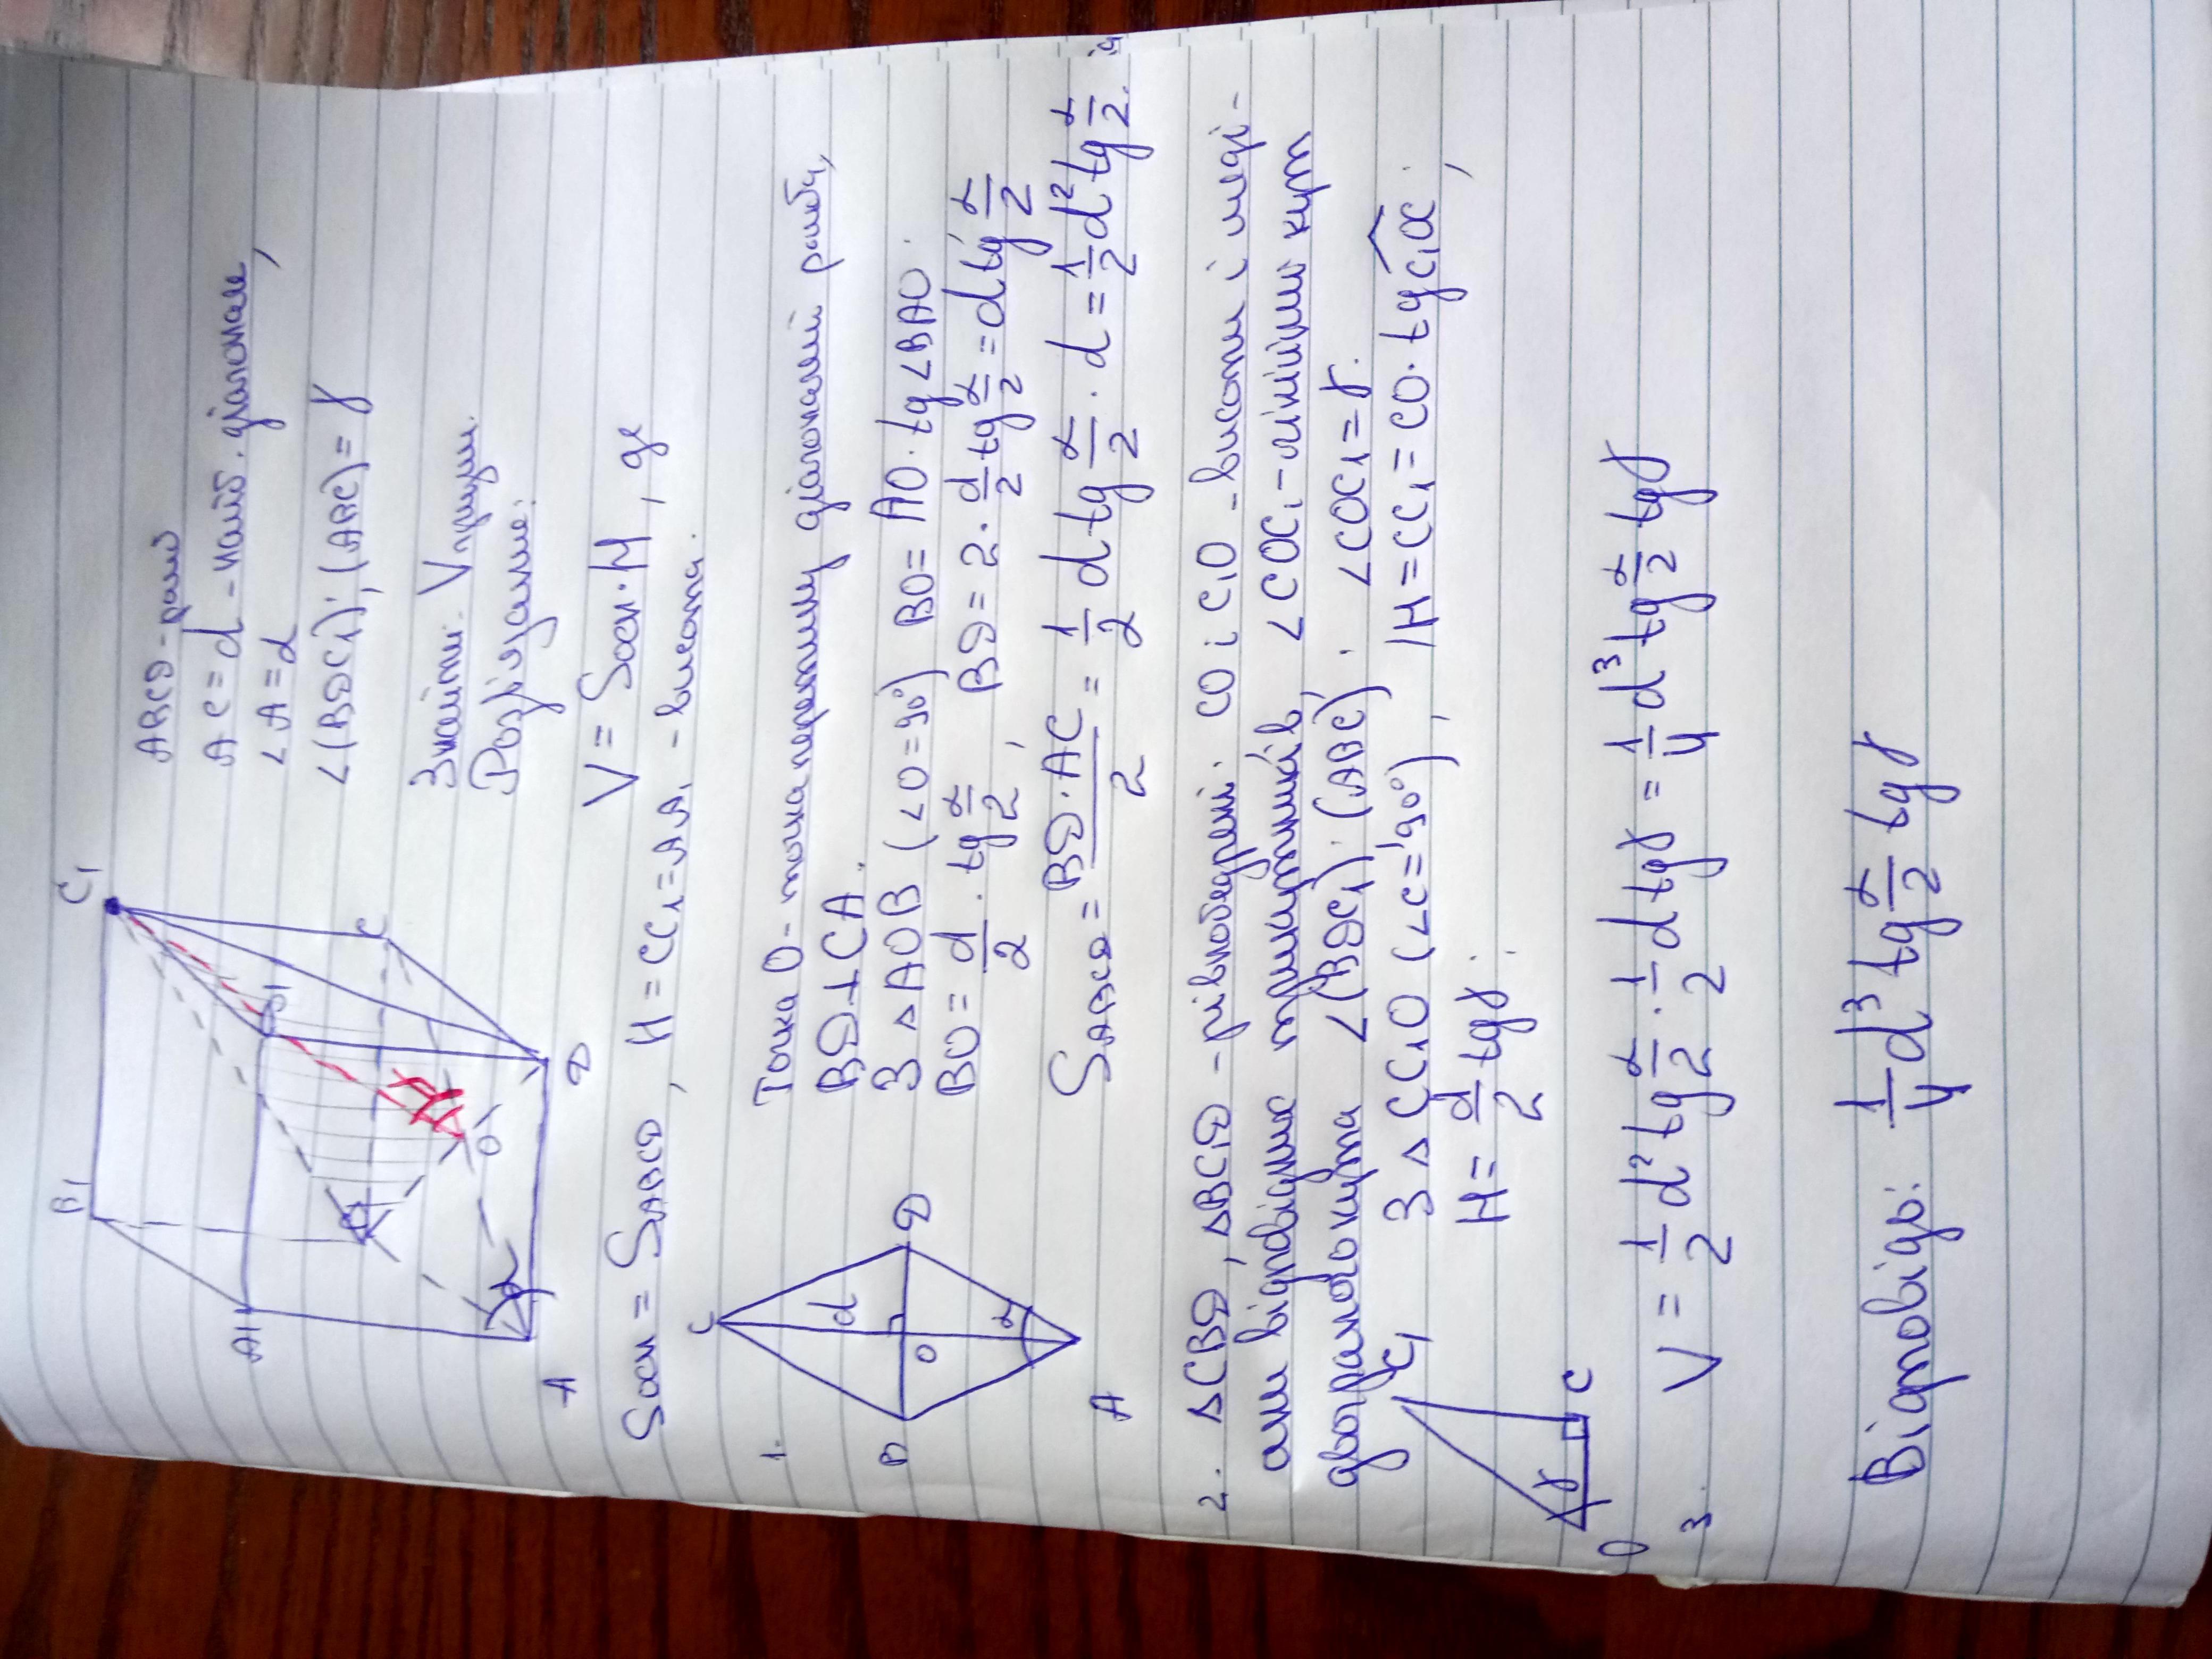 ABCD - ромб
AC = d - найб. діагональ,
∠A = α
∠(BDC₁);(ABC) = γ
Знайти: Vпризми.
Розв'язання:
C₁
B₁
D₁
A₁
C
B
D
O
α
A
V = Sосн·H, де
Sосн = SABCD, H = CC₁ = AA₁ - висота.
1. Точка O - точка перетину діагоналей ромба,
BD ⊥ CA.
З △AOB (∠O = 90°) BO = AO · tg∠BAO.
BO = d/2 · tg α/2, BD = 2 · d/2 tg α/2 = d tg α/2
SABCD = BD·AC/2 = 1/2 d tg α/2 · d = 1/2 d² tg α/2.
C
d
B
O
D
α
A
2. △CBD, △BC₁D - рівнобедрені. CO і C₁O - висоти і меді-
ани відповідних трикутників, ∠COC₁ - лінійний кут
двогранного кута ∠(BDC₁);(ABC). ∠COC₁ = γ.
З △CC₁O (∠C = 90°), H = CC₁ = CO · tg C₁OC,
H = d/2 tgγ.
C₁
γ
O
C
3. V = 1/2 d² tg α/2 · 1/2 d tgγ = 1/4 d³ tg α/2 tgγ
Відповідь: 1/4 d³ tg α/2 tgγ